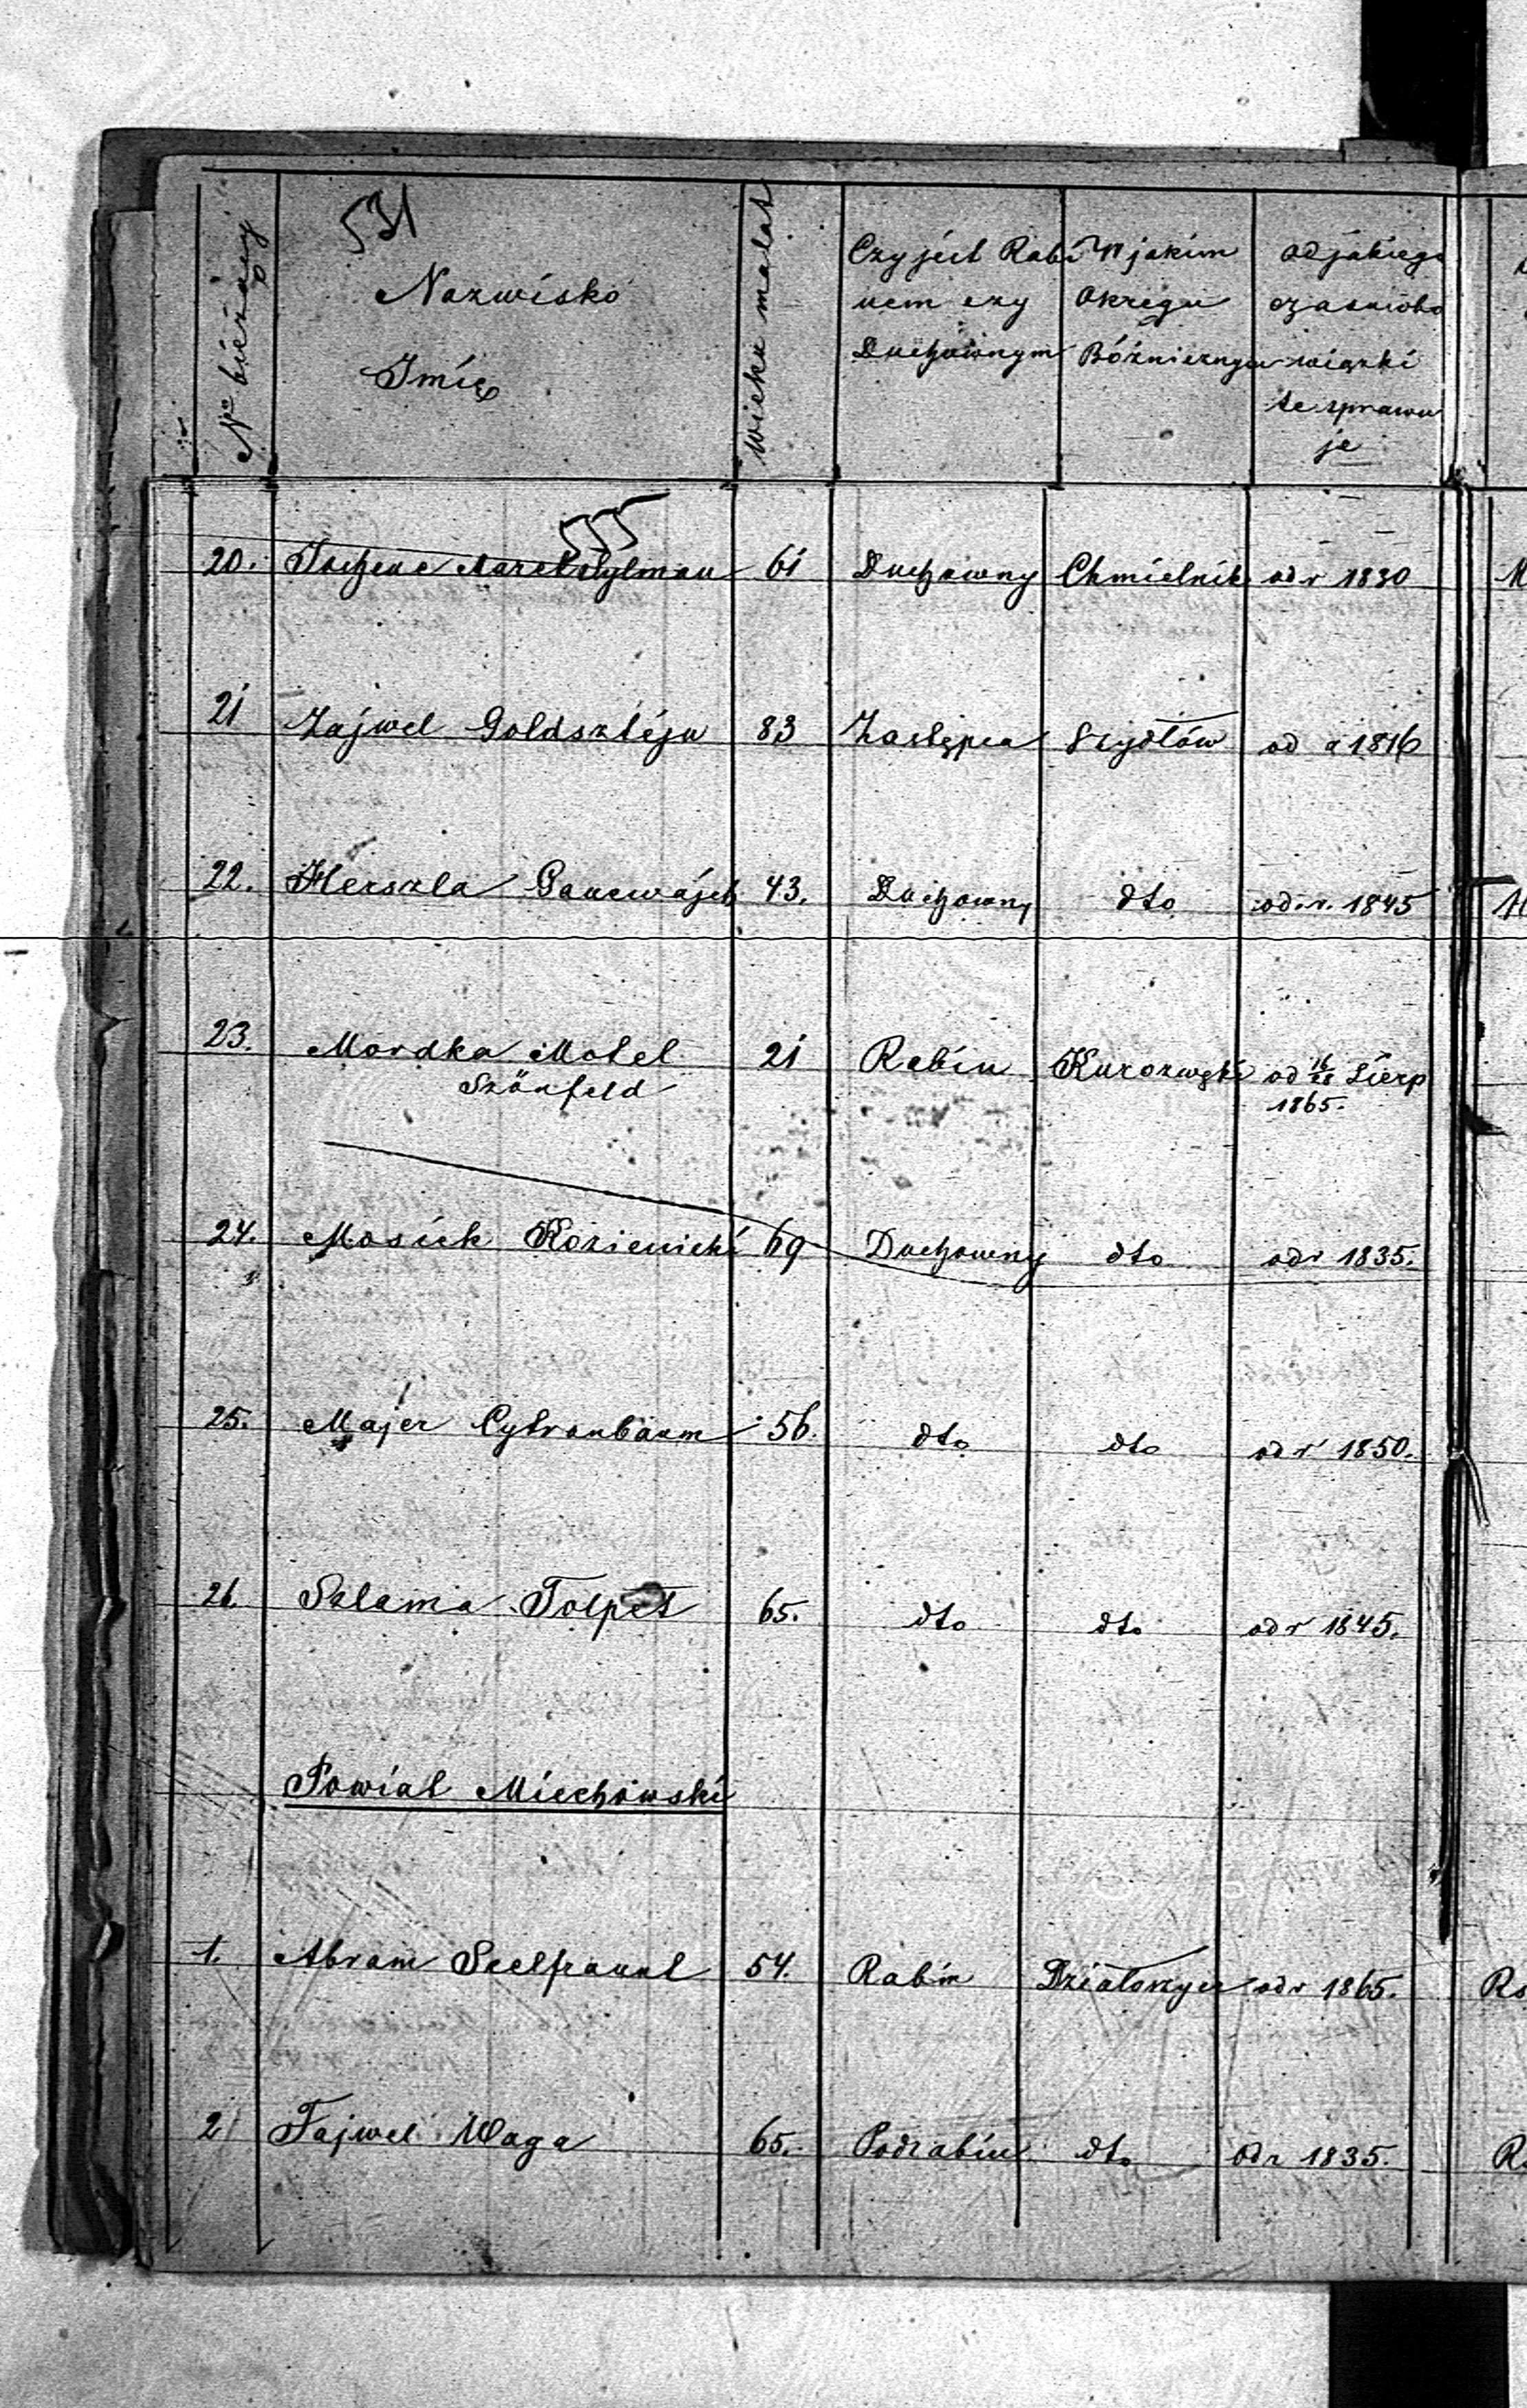 531
Nº bieżący
Nazwisko
Imię
wieku ma lat
Czy jest Rabi
nem czy
Duchownym
W jakim
Okręgu
Bóżniczym
od jakiego
czasu obo
wiązki
te sprawu
je
555
20. Marek Sylman 61 Duchowny Chmielnik od r 1830
21 Zajwel Goldsztejn 83 Zastępca Szydłów od r 1816
22. Herszla 43. Duchowny dto od. r. 1845
23. Mordka Motel 21 Rabin Kurozwęki od 16/28 Sierp
Szönfeld 1865.
24. Mosiek Kozienicki 69 Duchowny dto od r 1835.
25. Majer Cytronbaum 56. dto dto od r 1850.
26. Szlama Tolpet 65. dto dto od r 1845.
Powiat Miechowski
1. Abram 54. Rabin Działoszyce od r 1865.
2 Fajwel Waga 65. Podrabin dto od r 1835.